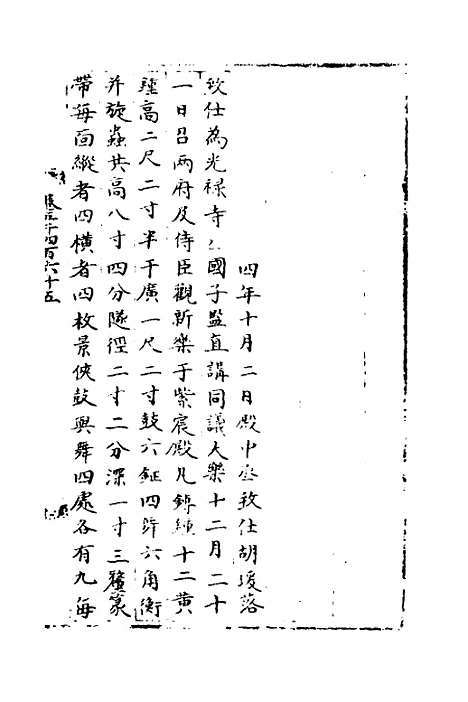 四年十月二日殿中丞致仕胡瑗落
致仕為光禄寺丞國子監直講同議大樂十二月二十
一日召兩府及侍臣觀新樂于紫宸殿凡鎛鍾十二黄
鍾高二尺二寸半于廣一尺二寸鼓六鉦四舞六角衡
并旋蟲共高八寸四分隧徑二寸二分深一寸三釐篆
帶每面縱者四横者四枚景俠鼓與舞四處各有九每
卷二千四百六十五